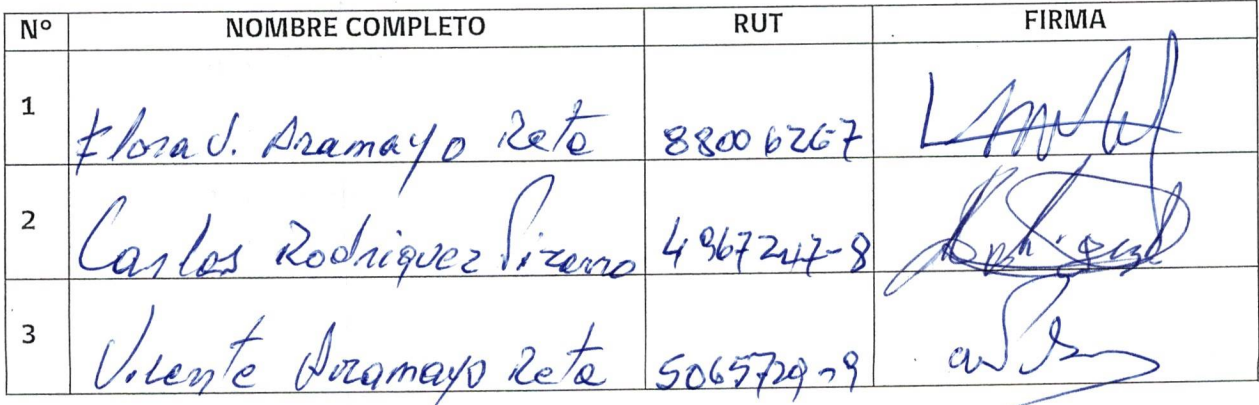 N° NOMBRE COMPLETO RUT FIRMA
1 Flora J. Aramayo Reta 88006267
2 Carlos Rodriguez Pizarro 4967247-8
3 Vicente Aramayo Reta 5065729-9